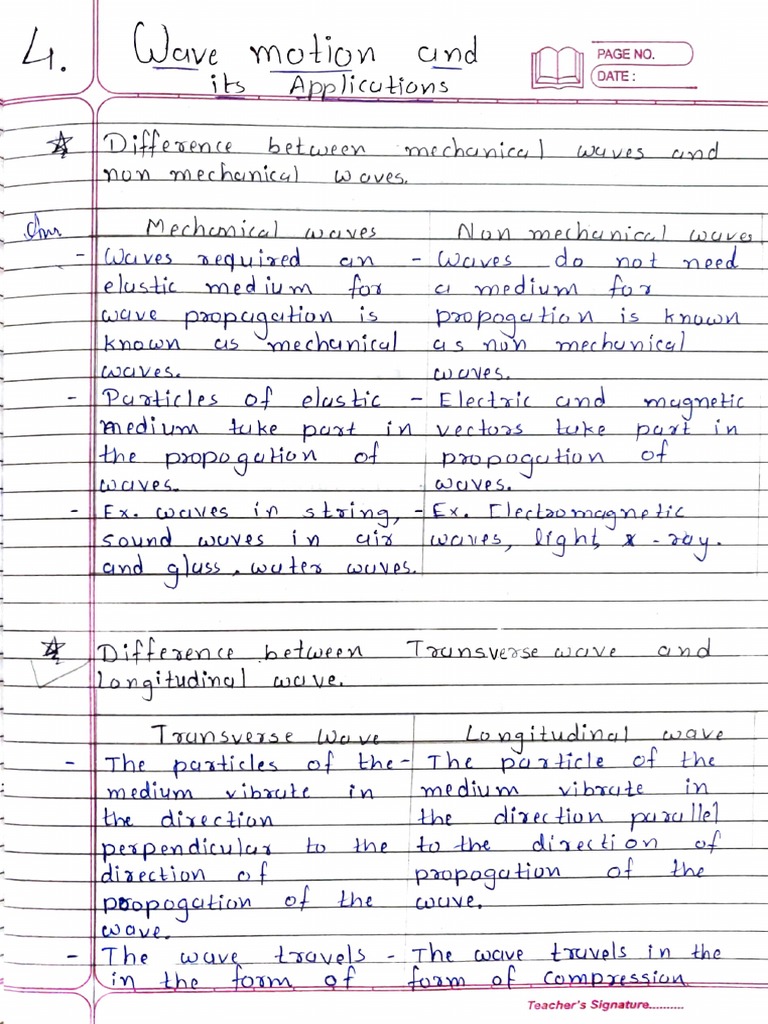 4. Wave motion and
its Applications
PAGE NO.
DATE :
Difference between mechanical waves and
non mechanical waves.
Ans
Mechanical waves
Non mechanical waves
- Waves required an
elastic medium for
wave propagation is
known as mechanical
waves.
- Waves do not need
a medium for
propagation is known
as non mechanical
waves.
- Particles of elastic
medium take part in
the propogation of
waves.
- Electric and magnetic
vectors take part in
propogation of
waves.
- Ex. waves in string,
sound waves in air
and glass, water waves.
- Ex. Electromagnetic
waves, light, x-ray.
Difference between Transverse wave and
longitudinal wave.
Transverse Wave
Longitudinal wave
- The particles of the
medium vibrate in
the direction
perpendicular to the
direction of
propogation of the
wave.
- The particle of the
medium vibrate in
the direction parallel
to the direction of
propogation of the
wave.
- The wave travels
in the form of
- The wave travels in the
form of compression
Teacher's Signature..........